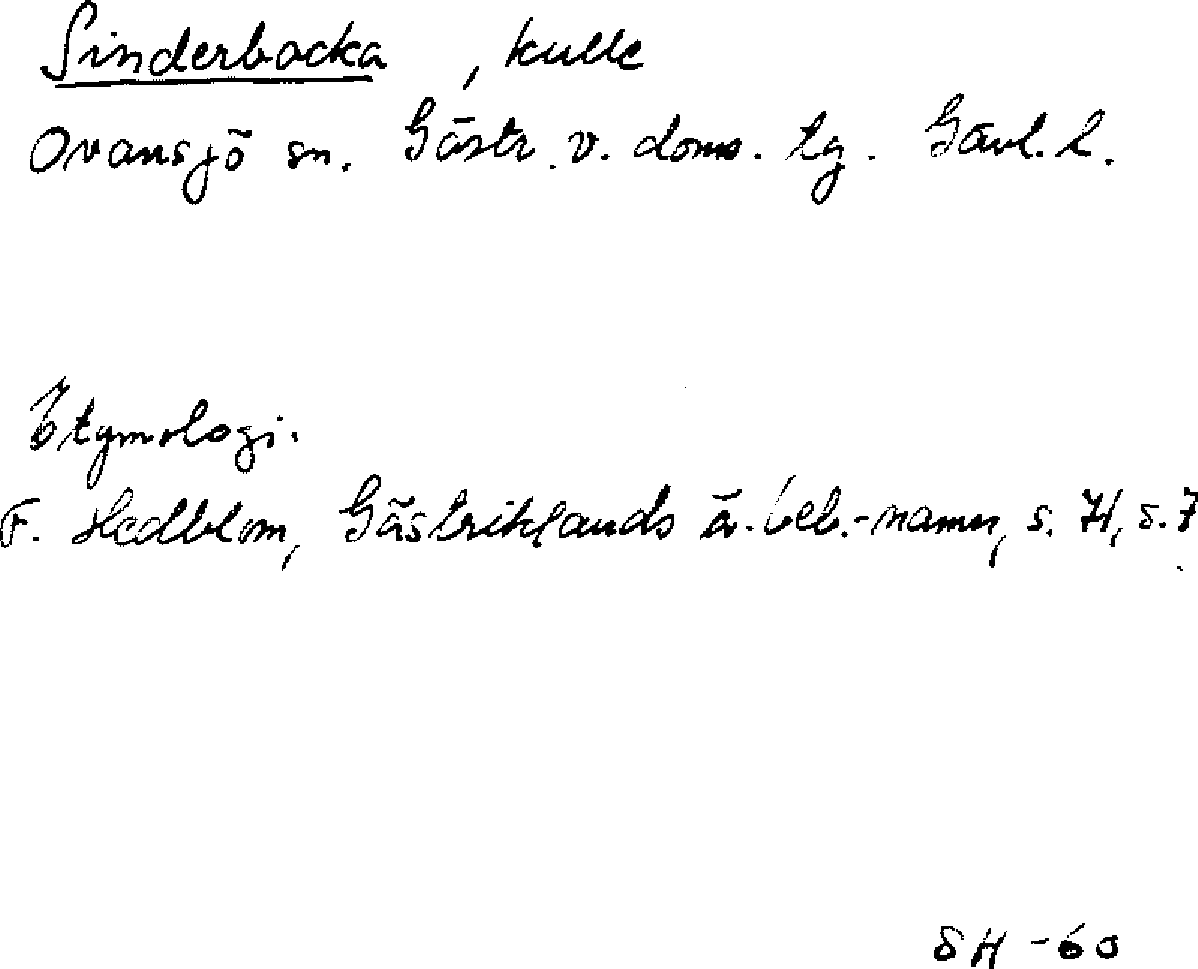 Sinderbacka, kulle
Ovansjö sn. Gästr. v. doms. tg. Gävl. l.
Etymologi.
F. Hedblom, Gästriklands ä. beb.-namn, s. 71, s. 7
SH -60